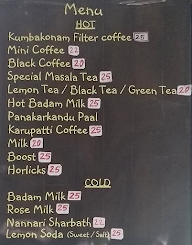 Menu
HOT
Kumbakonam Filter coffee 25
Mini Coffee 22
Black Coffee 20
Special Masala Tea 25
Lemon Tea / Black Tea / Green Tea 20
Hot Badam Milk 25
Panakarkandu Paal
Karupatti Coffee 25
Milk 20
Boost 25
Horlicks 25
COLD
Badam Milk 25
Rose Milk 25
Nannari Sharbath 22
Lemon Soda (Sweet / Salt) 25